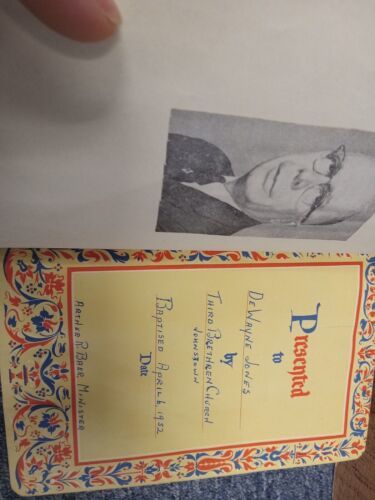 Presented
to
DeWayne Jones
by
Third Brethren Church
Johnstown
Baptised April 6, 1952
Date
Arthur R Baer Minister